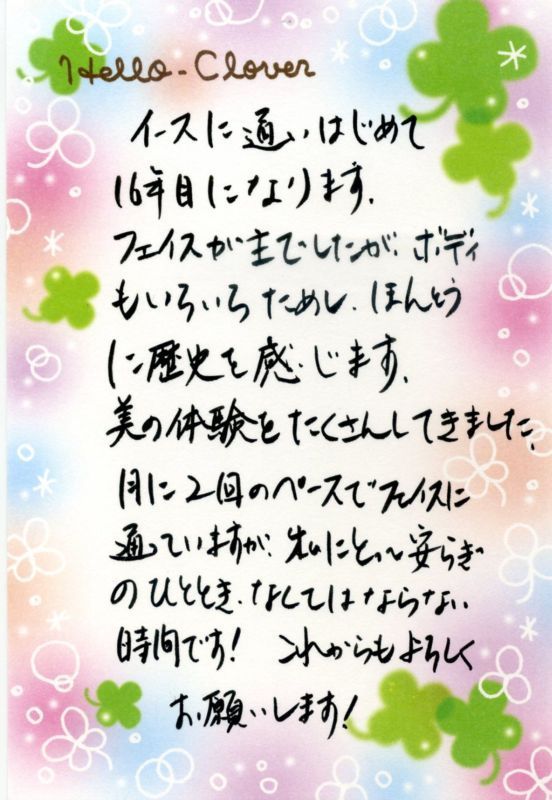 Hello-Clover
イースに通いはじめて
16年目になります。
フェイスが主でしたが、ボディ
もいろいろためし、ほんとう
に歴史を感じます。
美の体験をたくさんしてきました。
月に2回のペースでフェイスに
通っていますが、私にとって安らぎ
のひととき、なくてはならない
時間です! これからもよろしく
お願いします!